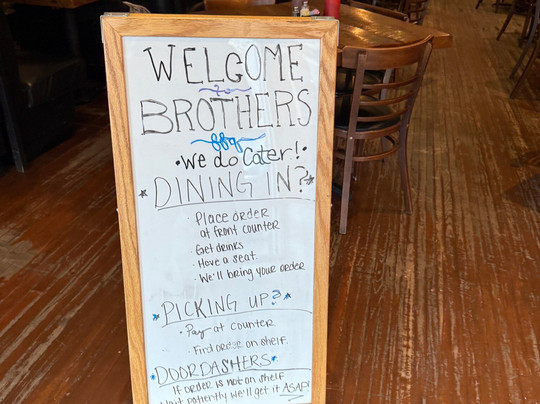 WELCOME
to
BROTHERS
BBQ
• We do Cater!
*DINING IN?*
· Place order
at front counter
· Get drinks
· Have a seat.
· We'll bring your order
*PICKING UP?*
• Pay at counter
· Find order on shelf.
*DOORDASHERS*
If order is not on shelf
Wait patiently we'll get it ASAP!